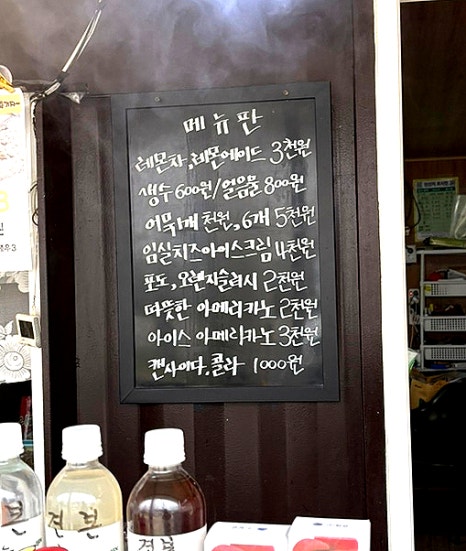 메뉴판
레몬차, 레몬에이드 3천원
생수 600원/얼음물 800원
어묵1개 천원, 6개 5천원
임실치즈아이스크림 4천원
포도, 오렌지슬러시 2천원
따뜻한 아메리카노 2천원
아이스 아메리카노 3천원
캔사이다. 콜라 1000원
견본
견본